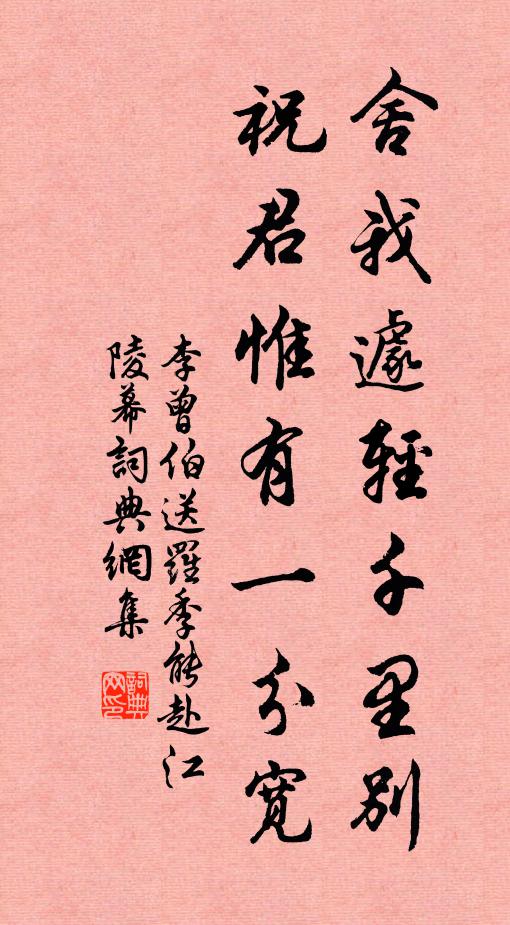 舍我遽輕千里別
祝君惟有一分寬
李曾伯送羅季能赴江
陵幕詞典網集
詞典
网印